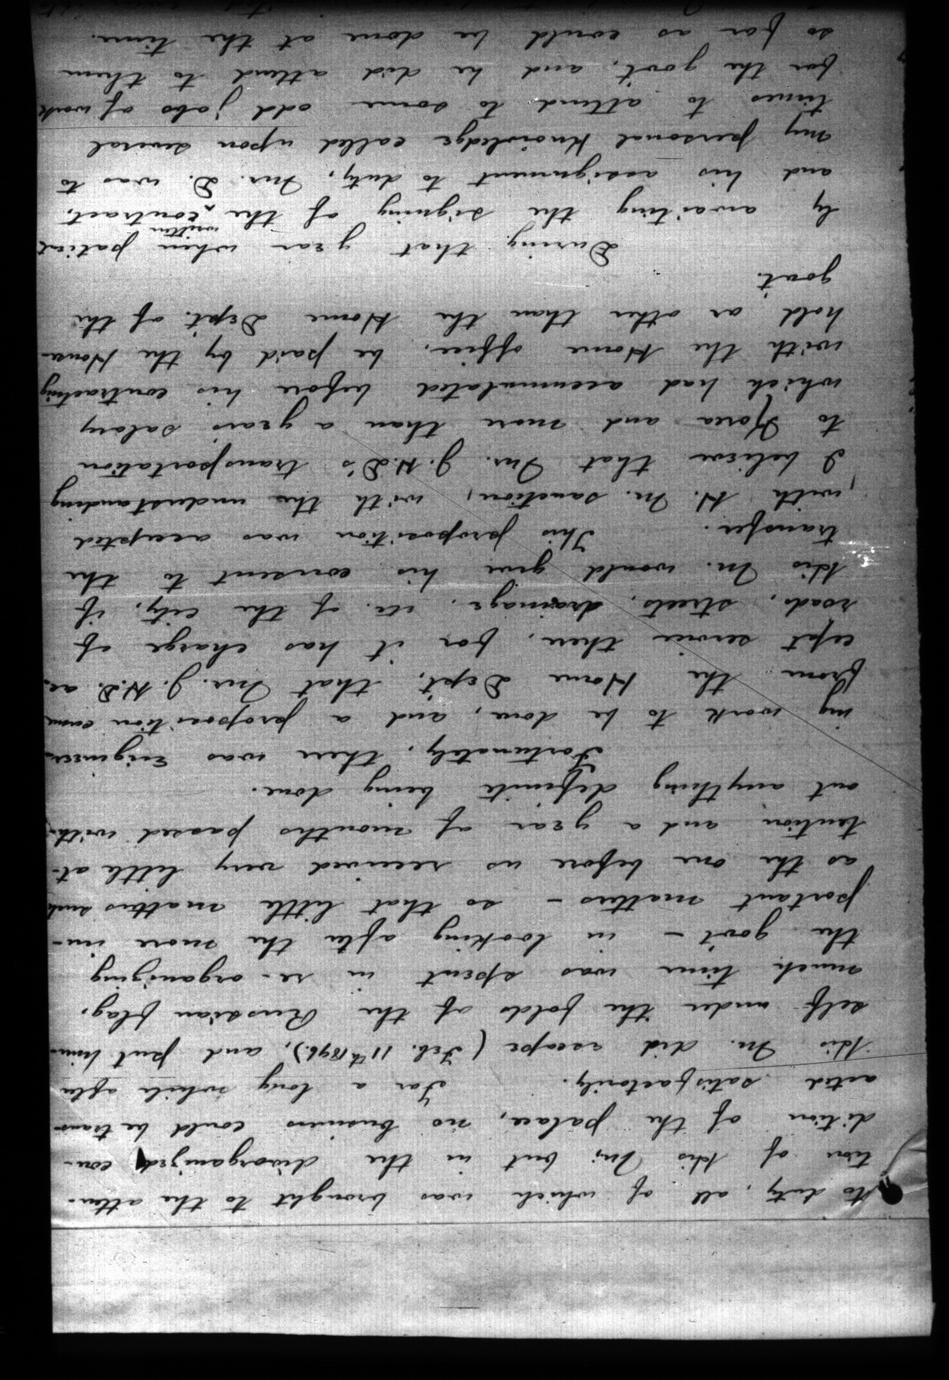 to duty, all of which was brought to the atten-
tion of His M; but in the disorganized con-
dition of the palace, no business could be trans-
acted satisfactorily. For a long while after
His M. did escape (Feb. 11th 1896), and put him-
self under the folds of the Russian flag,
much time was spent in re-organizing
the gov't - in looking after the more im-
portant matters - so that little matters such
as the one before us received very little at-
tention and a year of months passed with-
out anything definite being done.
Fortunately, there was Engineer
my work to be done, and a proposition came
from the Home Dept, that Mr. J. H. D. ac-
cept service there, for it has charge of
roads, streets, drainage, etc. of the city, if
His M. would give his consent to the
transfer. This proposition was accepted
with H. M. sanction, with the understanding
I believe that Mr. J. H. D's transportation
to Korea and more than a years salary
which had accumulated before his contracting
with the Home office, be paid by the House-
hold or other than the Home Dept. of the
gov't.
During that year when patient
ly awaiting the signing of the written contract,
and his assignment to duty, Mr. D. was to
my personal knowledge called upon several
times to attend to some odd jobs of work
for the gov't, and he did attend to them
so far as could be done at the time.